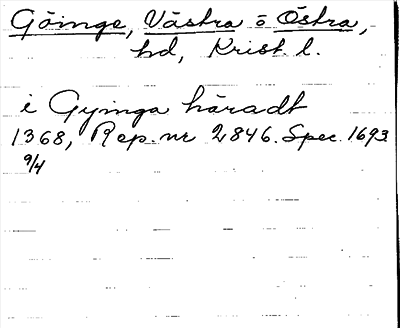 Göinge, Västra o Östra,
hd, Krist. l.
i Gyinga häradt
1368, Rep. nr 2846. Spec. 1693
9/4